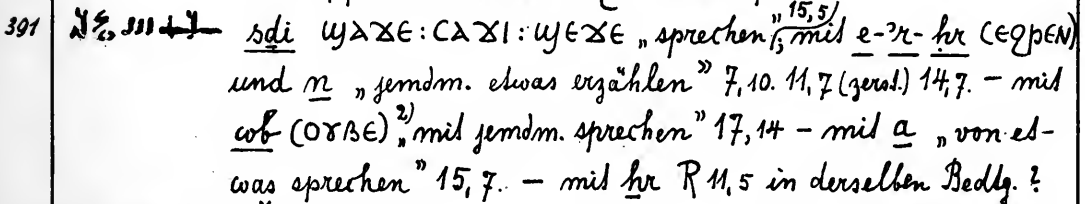 391 sdi ϣⲁϫⲉ : ⲥⲁϫⲓ : ϣⲉϫⲉ „sprechen" 15,5; mit e-ꜣr-ḥr (ⲉϩⲣⲉⲛ)
und n „jemdm. etwas erzählen" 7,10. 11,7 (zerst.) 14,7. – mit
(ⲟⲩⲃⲉ) 2) „mit jemdm. sprechen" 17,14 – mit a „von et-
was sprechen" 15,7. – mit ḥr R 11,5 in derselben Bedtg.?